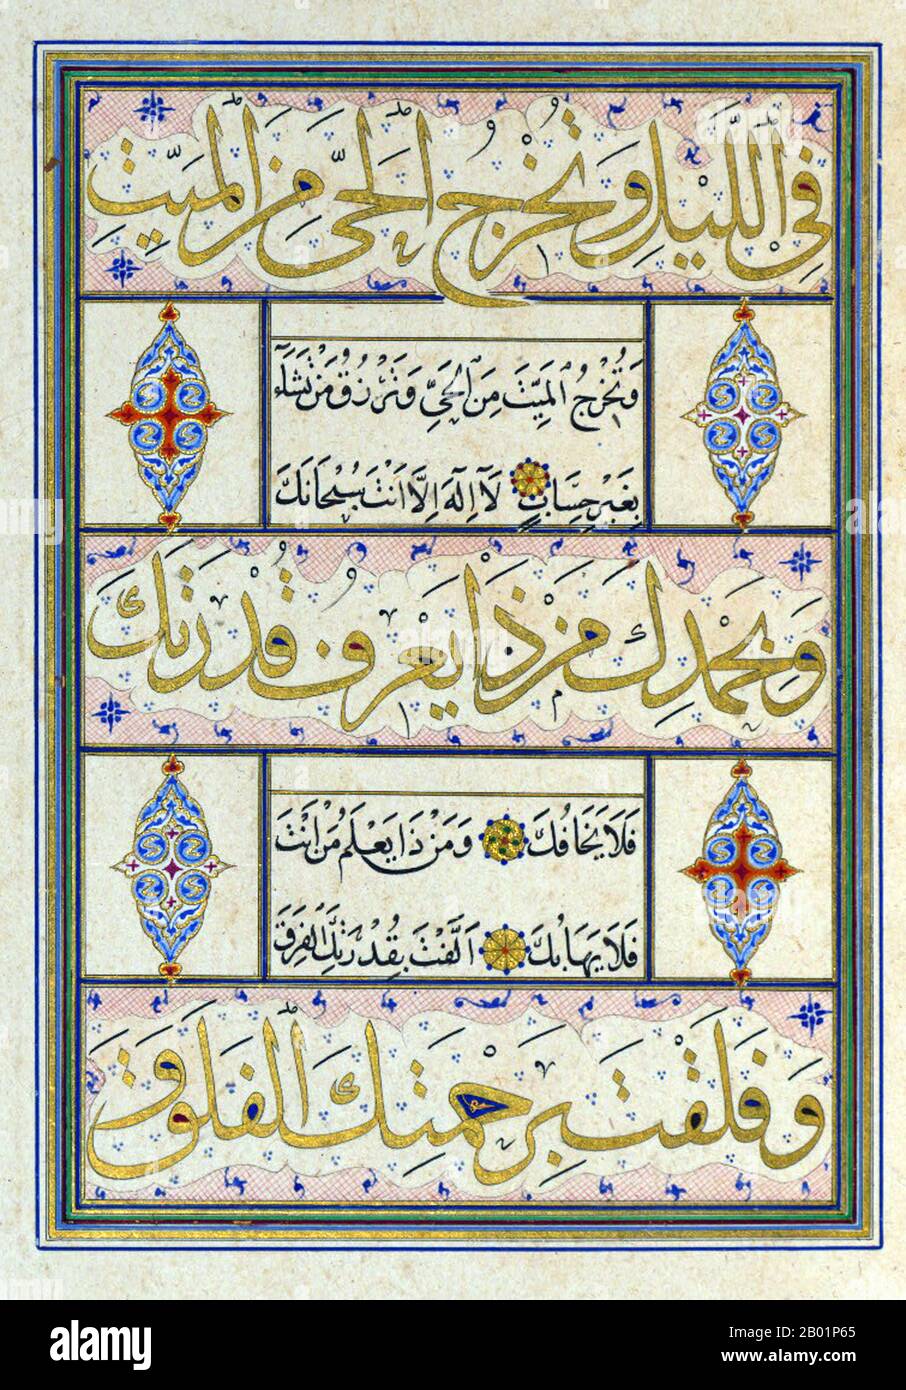 فِي اللَّيْلِ وَتُخْرِجُ الْحَيَّ مِنَ الْمَيِّتِ
وَتُخْرِجُ الْمَيِّتَ مِنَ الْحَيِّ وَتَرْزُقُ مَنْ تَشَاءُ
بِغَيْرِ حِسَابٍ لَا إِلَهَ إِلَّا أَنْتَ سُبْحَانَكَ
وَبِحَمْدِكَ مَنْ ذَا يَعْرِفُ قُدْرَتَكَ
فَلَا يَخَافُكَ وَمَنْ ذَا يَعْلَمُ مَنْ أَنْتَ
فَلَا يَهَابُكَ أَلَّفْتَ بِقُدْرَتِكَ الْفِرَقَ
وَفَلَقْتَ بِرَحْمَتِكَ الْفَلَقَ وَ
alamy
Image ID: 2B01P65
www.alamy.com